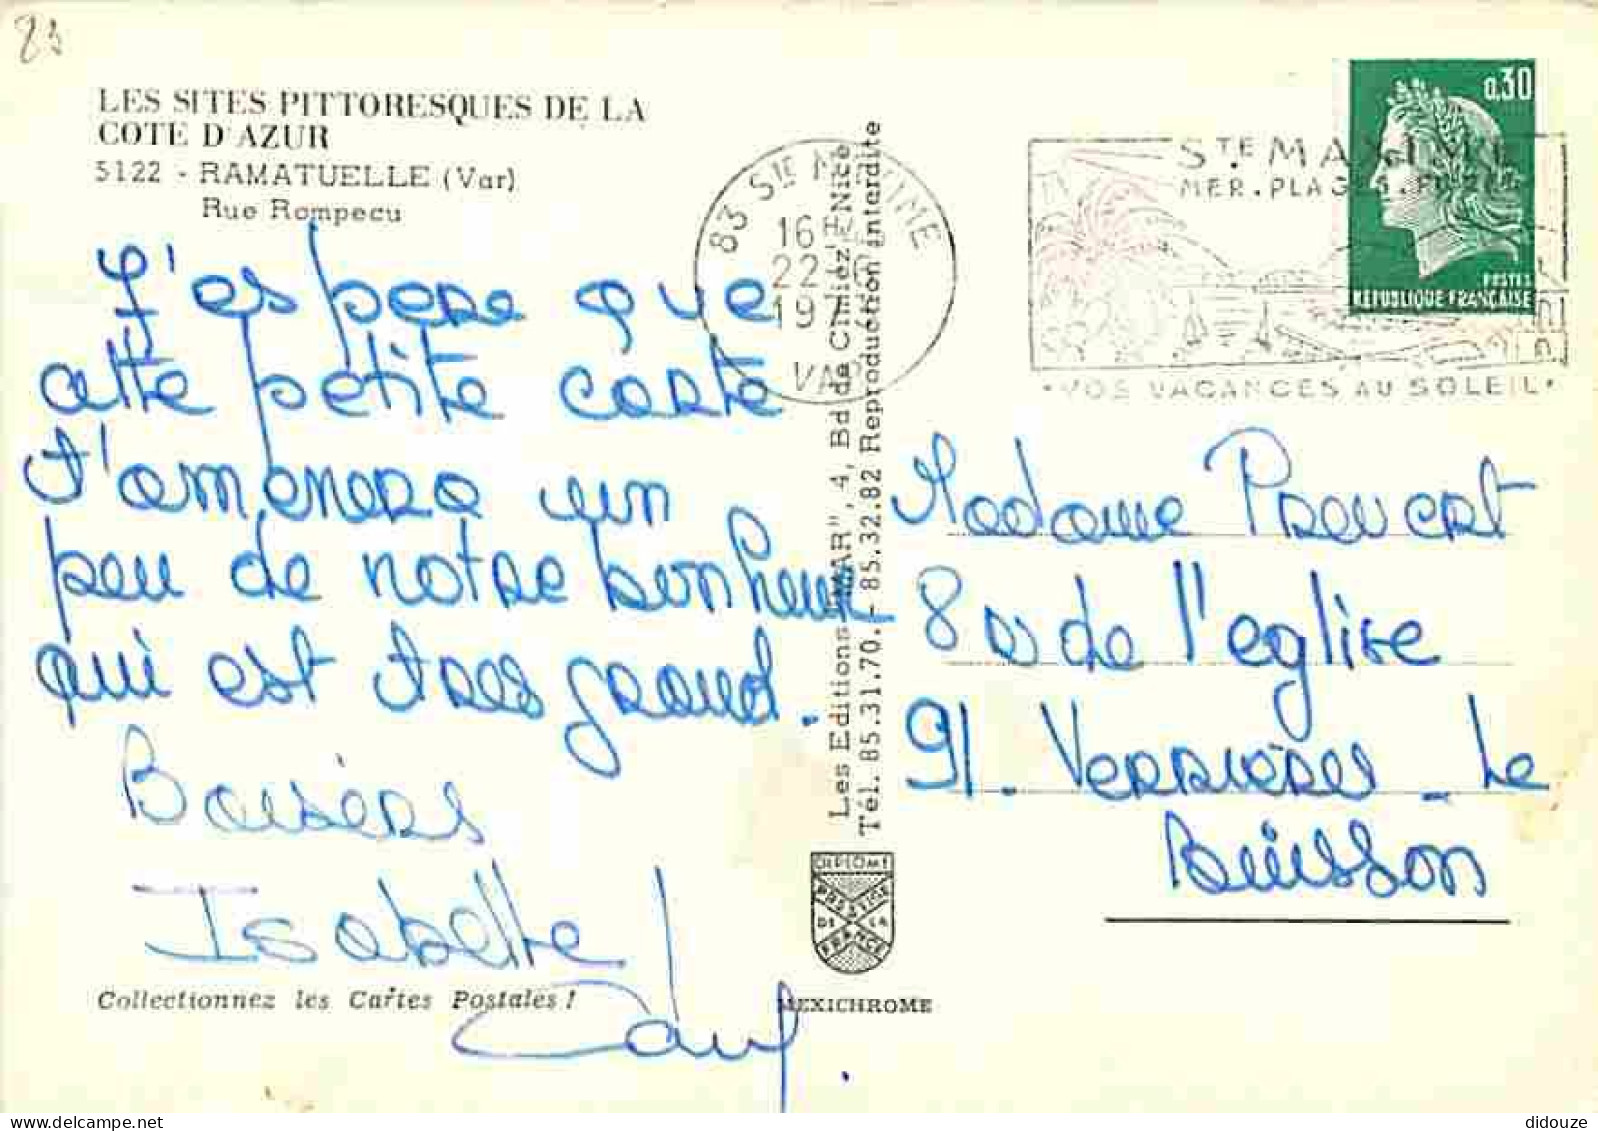 83
LES SITES PITTORESQUES DE LA
COTE D'AZUR
5122 - RAMATUELLE (Var)
Rue Rompecu
J'espere que
cette petite carte
t'amenera un
peu de notre bonheur
qui est tres grand.
Baisers
Isabelle
Collectionnez les Cartes Postales !
Les Editions "MAR", 4, Bd de Cimiez, Nice
Tél. 85.31.70. - 85.32.82 Reproduction interdite
DIPLOME
PRESTIGE
DE LA
FRANCE
MEXICHROME
83 STE MAXIME
16H
22
197
VAR
STE MAXIME
MER.PLAGES.
VOS VACANCES AU SOLEIL
0,30
POSTES
REPUBLIQUE FRANÇAISE
Madame Prevert
8 de l'eglise
91. Verrieres - Le
Buisson
didouze @ delcampe.net